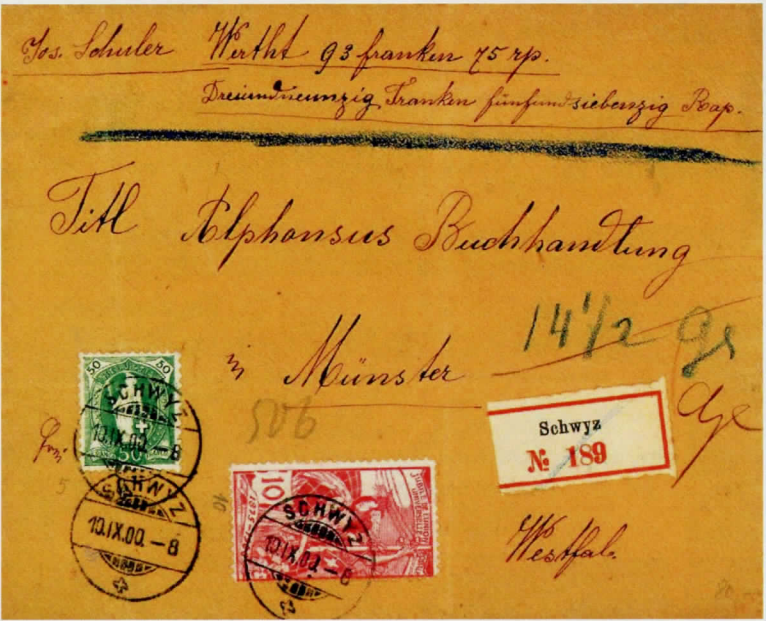 Jos. Schuler Werth 93 franken 75 rp.
Dreiundneunzig Franken fünfundsiebenzig Rap.
Titl Alphonsus Buchhandlung
in Münster
14 1/2 gr
50
50
SCHWYZ
10.IX.00. – 8
50
506
Schwyz
№ 189
SCHWYZ
10.IX.00. – 8
10
SCHWYZ
10.IX.00. – 8
Westfal.